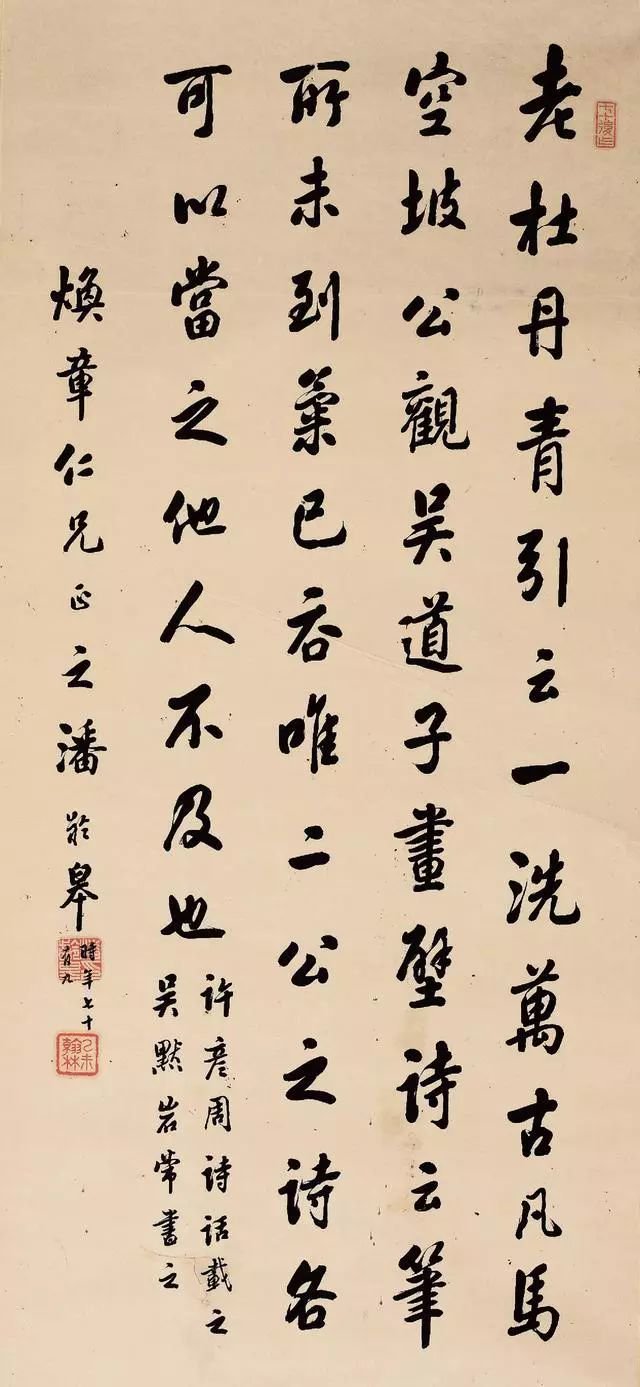 老杜丹青引云一洗萬古凡馬
空坡公觀吴道子畫壁詩云筆
所未到氣已吞唯二公之詩各
可以當之他人不及也
許彦周詩話載之
吴默岩常書之
煥章仁兄正之潘齡皋
時年七十
有九
己未
翰林